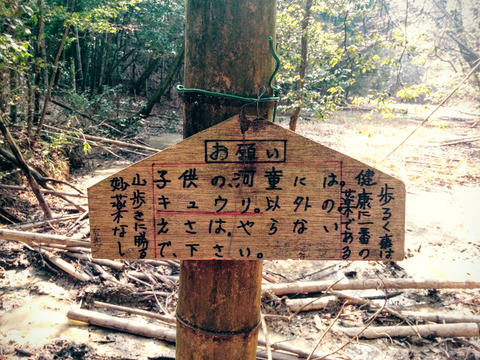 お願い
歩るく事は
健康に一番の
薬である
子供の、河童には。
キュウリ。以外の
えさは、やらない
で、下さい。
山歩きに勝る
妙薬なし